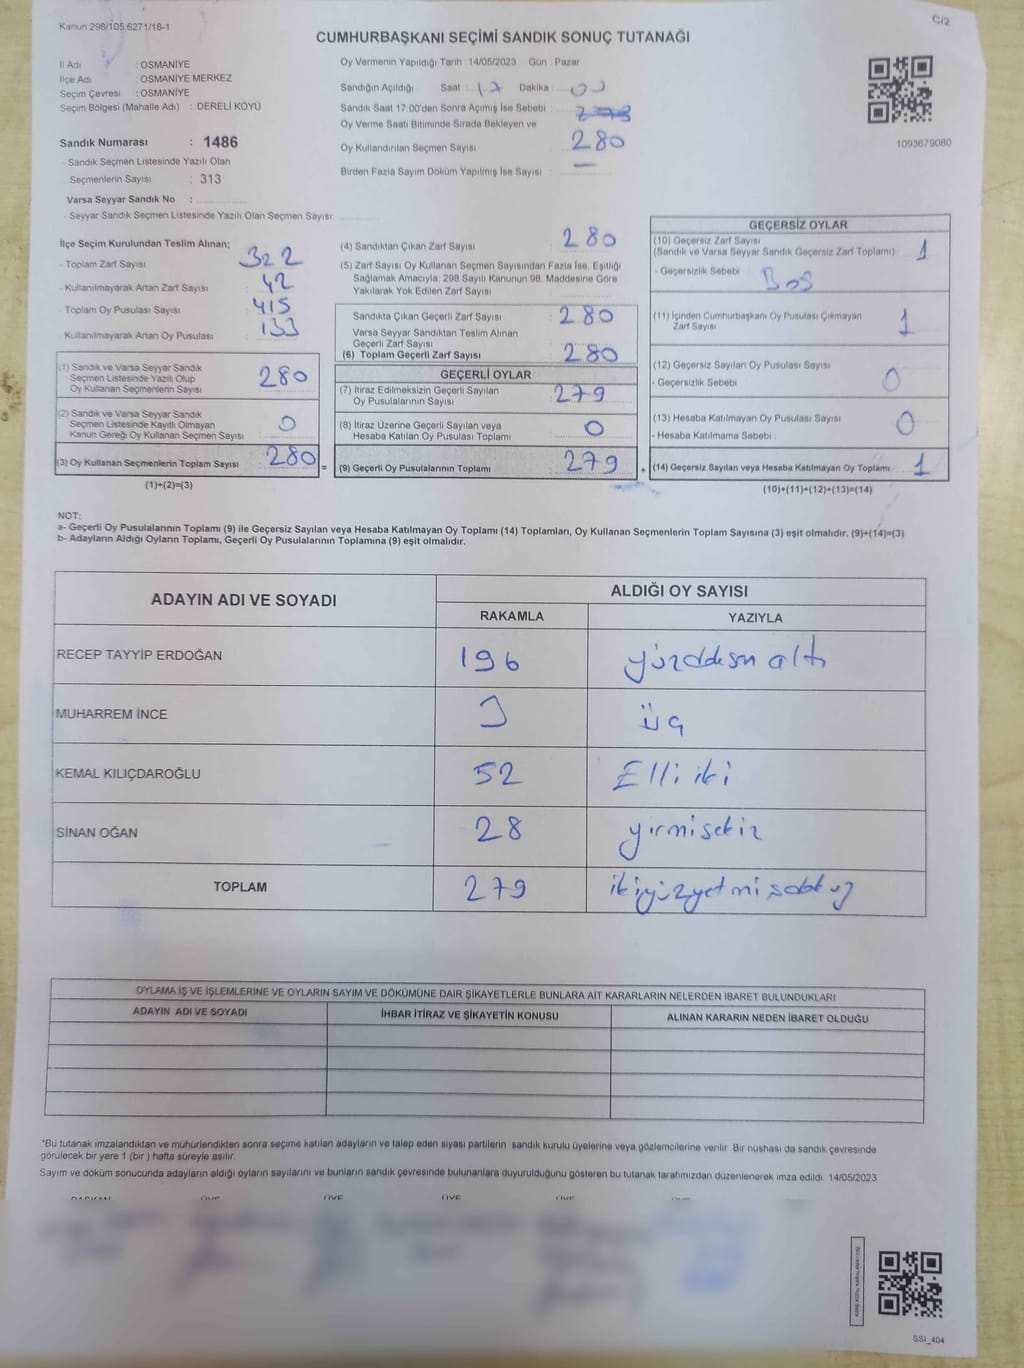 Kanun:298/105,6271/18-1
C/2
CUMHURBAŞKANI SEÇİMİ SANDIK SONUÇ TUTANAĞI
İl Adı : OSMANİYE
İlçe Adı : OSMANİYE MERKEZ
Seçim Çevresi : OSMANİYE
Seçim Bölgesi (Mahalle Adı) : DERELİ KÖYÜ
Oy Vermenin Yapıldığı Tarih :14/05/2023 Gün : Pazar
Sandığın Açıldığı Saat : 17 Dakika : 00
Sandık Saat 17:00'den Sonra Açımış İse Sebebi :
Oy Verme Saati Bitiminde Sırada Bekleyen ve
Oy Kullandırılan Seçmen Sayısı : 280
Birden Fazla Sayım Döküm Yapılmış İse Sayısı : —
1093679080
Sandık Numarası : 1486
- Sandık Seçmen Listesinde Yazılı Olan
Seçmenlerin Sayısı : 313
Varsa Seyyar Sandık No :
- Seyyar Sandık Seçmen Listesinde Yazılı Olan Seçmen Sayısı:
İlçe Seçim Kurulundan Teslim Alınan;
- Toplam Zarf Sayısı 322
- Kullanılmayarak Artan Zarf Sayısı 42
- Toplam Oy Pusulası Sayısı 415
Kullanılmayarak Artan Oy Pusulası 133
(1) Sandık ve Varsa Seyyar Sandık
Seçmen Listesinde Yazılı Olup
Oy Kullanan Seçmenlerin Sayısı 280
(2) Sandık ve Varsa Seyyar Sandık
Seçmen Listesinde Kayıtlı Olmayan
Kanun Gereği Oy Kullanan Seçmen Sayısı 0
(3) Oy Kullanan Seçmenlerin Toplam Sayısı 280 =
(1)+(2)=(3)
(4) Sandıktan Çıkan Zarf Sayısı 280
(5) Zarf Sayısı Oy Kullanan Seçmen Sayısından Fazla İse, Eşitliği
Sağlamak Amacıyla, 298 Sayılı Kanunun 98. Maddesine Göre
Yakılarak Yok Edilen Zarf Sayısı
Sandıkta Çıkan Geçerli Zarf Sayısı 280
Varsa Seyyar Sandıktan Teslim Alınan
Geçerli Zarf Sayısı
(6) Toplam Geçerli Zarf Sayısı 280
GEÇERLİ OYLAR
(7) İtiraz Edilmeksizin Geçerli Sayılan
Oy Pusulalarının Sayısı 279
(8) İtiraz Üzerine Geçerli Sayılan veya
Hesaba Katılan Oy Pusulası Toplamı 0
(9) Geçerli Oy Pusulalarının Toplamı 279 +
GEÇERSİZ OYLAR
(10) Geçersiz Zarf Sayısı
(Sandık ve Varsa Seyyar Sandık Geçersiz Zarf Toplamı) 1
- Geçersizlik Sebebi Boş
(11) İçinden Cumhurbaşkanı Oy Pusulası Çıkmayan
Zarf Sayısı 1
(12) Geçersiz Sayılan Oy Pusulası Sayısı
- Geçersizlik Sebebi 0
(13) Hesaba Katılmayan Oy Pusulası Sayısı 0
- Hesaba Katılmama Sebebi :
(14) Geçersiz Sayılan veya Hesaba Katılmayan Oy Toplamı 1
(10)+(11)+(12)+(13)=(14)
NOT:
a- Geçerli Oy Pusulalarının Toplamı (9) ile Geçersiz Sayılan veya Hesaba Katılmayan Oy Toplamı (14) Toplamları, Oy Kullanan Seçmenlerin Toplam Sayısına (3) eşit olmalıdır. (9)+(14)=(3)
b- Adayların Aldığı Oyların Toplamı, Geçerli Oy Pusulalarının Toplamına (9) eşit olmalıdır.
ADAYIN ADI VE SOYADI
ALDIĞI OY SAYISI
RAKAMLA YAZIYLA
RECEP TAYYİP ERDOĞAN 196 yüzddsn altı
MUHARREM İNCE 3 üç
KEMAL KILIÇDAROĞLU 52 Elli iki
SİNAN OĞAN 28 yirmisekiz
TOPLAM 279
OYLAMA İŞ VE İŞLEMLERİNE VE OYLARIN SAYIM VE DÖKÜMÜNE DAİR ŞİKAYETLERLE BUNLARA AİT KARARLARIN NELERDEN İBARET BULUNDUKLARI
ADAYIN ADI VE SOYADI İHBAR İTİRAZ VE ŞİKAYETİN KONUSU ALINAN KARARIN NEDEN İBARET OLDUĞU
*Bu tutanak imzalandıktan ve mühürlendikten sonra seçime katılan adayların ve talep eden siyasi partilerin sandık kurulu üyelerine veya gözlemcilerine verilir. Bir nüshası da sandık çevresinde
görülecek bir yere 1 (bir ) hafta süreyle asılır.
Sayım ve döküm sonucunda adayların aldığı oyların sayılarını ve bunların sandık çevresinde bulunanlara duyurulduğunu gösteren bu tutanak tarafımızdan düzenlenerek imza edildi. 14/05/2023
SSI_404